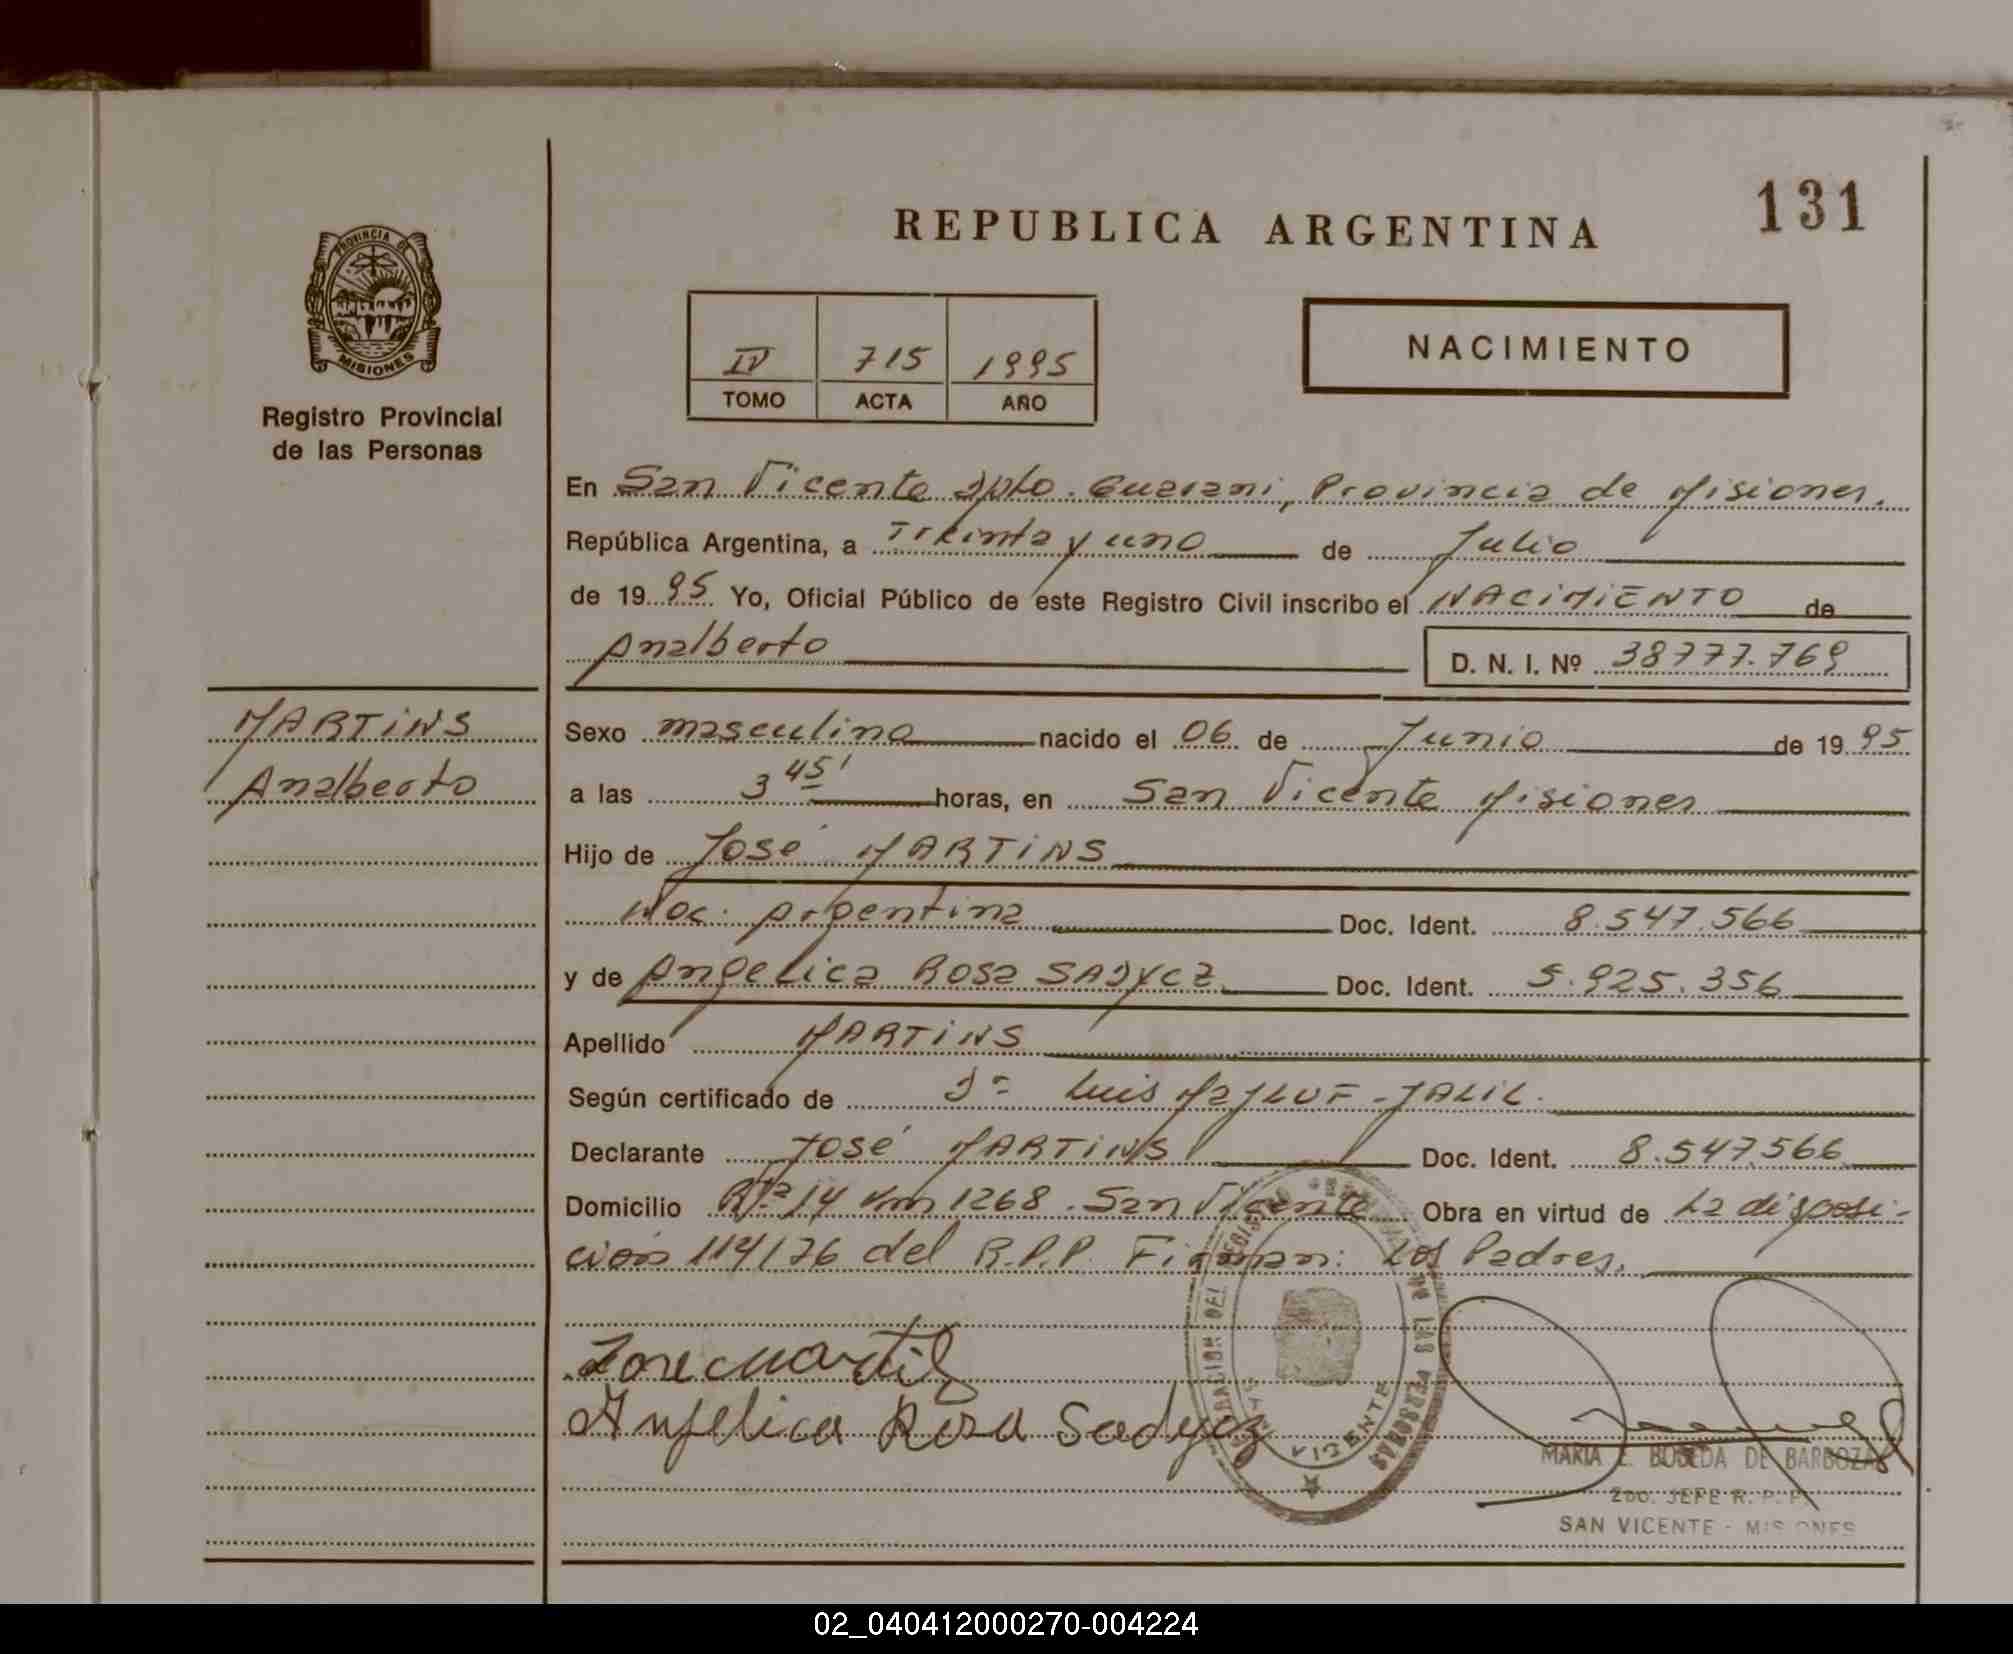 REPUBLICA ARGENTINA
131
PROVINCIA DE
MISIONES
Registro Provincial
de las Personas
IV 715 1995
TOMO ACTA AÑO
NACIMIENTO
En San Vicente Dpto. Guarani, Provincia de Misiones.
República Argentina, a Treinta y uno de Julio
de 1995 Yo, Oficial Público de este Registro Civil inscribo el NACIMIENTO de
Analberto D. N. I. Nº 38777.769
MARTINS
Analberto
Sexo masculino nacido el 06 de Junio de 1995
a las 3 45' horas, en San Vicente Misiones
Hijo de José MARTINS
Nac. Argentina Doc. Ident. 8.547.566
y de Angelica Rosa SADYCZ Doc. Ident. 5.925.356
Apellido MARTINS
Según certificado de Dr Luis - JALIL.
Declarante José MARTINS Doc. Ident. 8.547.566
Domicilio Rta 14 km 1268. San Vicente Obra en virtud de La disposi-
ción 114/76 del R.P.P. Firman: Los Padres.
Angelica Rosa Sadycz
DE LAS PERSONAS
VICENTE
MARIA E. BOBEDA DE BARBOZA
2DO. JEFE R. P. P.
SAN VICENTE - MISIONES
02_040412000270-004224